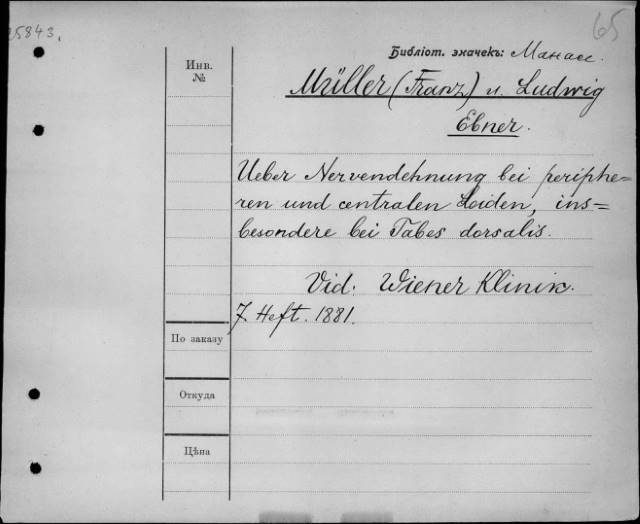 25843.
65
Библіот. значекъ: Манасс.
Инв.
№
Müller (Franz) u. Ludwig
Ebner.
Ueber Nervendehnung bei periphe-
ren und centralen Leiden, ins=
besondere bei Tabes dorsalis.
Vid: Wiener Klinik.
7. Heft. 1881.
По заказу
Откуда
Цѣна